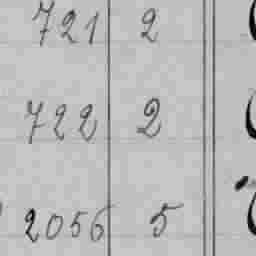 721 2
722 2
2056 5